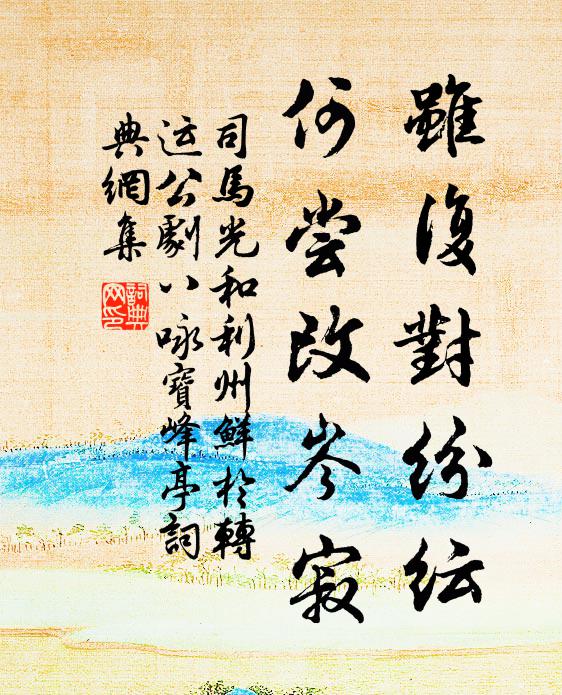 雖復對紛紜
何嘗改岑寂
司馬光和利州鮮於轉
运公劇八咏寶峰亭詞
典網集
詞典
网印